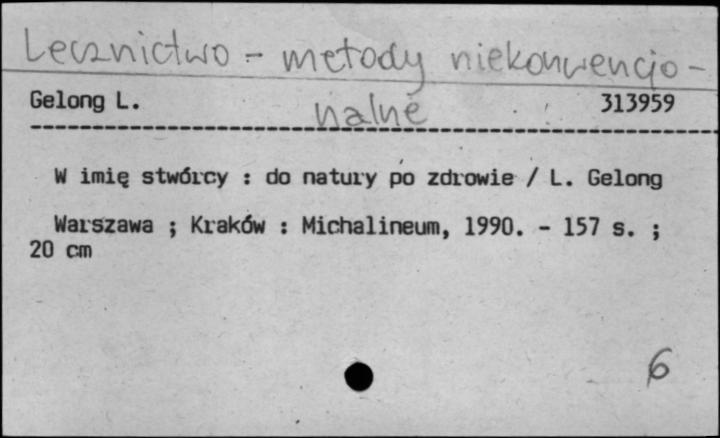 Lecznictwo - metody niekonwencjo-
nalne
Gelong L. 313959
W imię stwórcy : do natury po zdrowie / L. Gelong
Warszawa ; Kraków : Michalineum, 1990. - 157 s. ;
20 cm
6